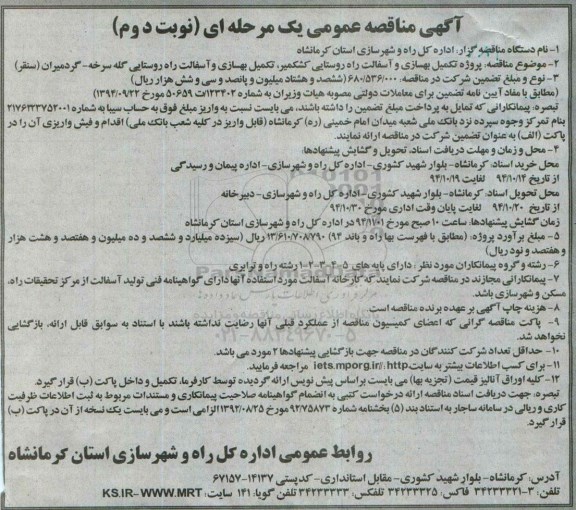 آگهی مناقصه عمومی یک مرحله ای (نوبت دوم)
۱- نام دستگاه مناقصه گزار: اداره کل راه و شهرسازی استان کرمانشاه
۲- موضوع مناقصه: پروژه تکمیل بهسازی و آسفالت راه روستایی کشکمیر، تکمیل بهسازی و آسفالت راه روستایی گله سرخه- گردمیران (سنقر)
۳- نوع و مبلغ تضمین شرکت در مناقصه: ۶۸۰/۵۳۶/۰۰۰ (ششصد و هشتاد میلیون و پانصد و سی و شش هزار ریال)
(مطابق با مفاد آیین نامه تضمین برای معاملات دولتی مصوبه هیات وزیران به شماره ۱۲۳۴۰۲/ت ۵۰۶۵۹ مورخ ۱۳۹۴/۰۹/۲۲)
تبصره: پیمانکارانی که تمایل به پرداخت مبلغ تضمین را داشته باشند، می بایست نسبت به واریز مبلغ فوق به حساب سیبا به شماره ۲۱۷۶۴۳۳۷۵۲۰۰۱
بنام تمرکز وجوه سپرده نزد بانک ملی شعبه میدان امام خمینی (ره) کرمانشاه (قابل واریز در کلیه شعب بانک ملی) اقدام و فیش واریزی آن را در
پاکت (الف) به عنوان تضمین شرکت در مناقصه ارائه نمایند.
۴- محل و زمان و مهلت دریافت اسناد، تحویل و گشایش پیشنهادها:
محل خرید اسناد: کرمانشاه- بلوار شهید کشوری- اداره کل راه و شهرسازی- اداره پیمان و رسیدگی
از تاریخ ۹۴/۱۰/۱۴ لغایت ۹۴/۱۰/۱۹
محل تحویل اسناد: کرمانشاه- بلوار شهید کشوری- اداره کل راه و شهرسازی- دبیرخانه
از تاریخ ۹۴/۱۰/۲۰ لغایت پایان وقت اداری مورخ ۹۴/۱۰/۳۰
زمان گشایش پیشنهادها: ساعت ۱۰ صبح مورخ ۹۴/۱۱/۰۱ در اداره کل راه و شهرسازی استان کرمانشاه
۵- مبلغ برآورد پروژه: (مطابق با فهرست بها راه و باند ۹۴) ۱۳/۶۱۰/۷۰۸/۷۹۰ ریال (سیزده میلیارد و ششصد و ده میلیون و هفتصد و هشت هزار
و هفتصد و نود ریال)
۶- رشته و گروه پیمانکاران مورد نظر: دارای پایه های ۵-۴-۳-۲-۱ رشته راه و ترابری
۷- پیمانکارانی مجازند در مناقصه شرکت نمایند که کارخانه آسفالت مورد استفاده آنها دارای گواهینامه فنی تولید آسفالت از مرکز تحقیقات راه،
مسکن و شهرسازی باشد.
۸- هزینه چاپ آگهی بر عهده برنده مناقصه است.
۹- پاکت مناقصه گرانی که اعضای کمیسیون مناقصه از عملکرد قبلی آنها رضایت نداشته باشند با استناد به سوابق قابل ارائه، بازگشایی
نخواهد شد.
۱۰- حداقل تعداد شرکت کنندگان در مناقصه جهت بازگشایی پیشنهادها ۲ مورد می باشد.
۱۱- برای کسب اطلاعات بیشتر به سایت http://iets.mporg.ir مراجعه فرمایید.
۱۲- کلیه اوراق آنالیز قیمت (تجزیه بها) می بایست براساس پیش نویس ارائه گردیده توسط کارفرما، تکمیل و داخل پاکت (ب) قرار گیرد.
تبصره: جهت دریافت اسناد مناقصه ارائه درخواست کتبی به انضمام گواهینامه صلاحیت پیمانکاری و مستندات مربوط به ثبت اطلاعات ظرفیت
کاری و ریالی در سامانه ساجار به استناد بند (۵) بخشنامه شماره ۹۲/۷۵۸۷۳ مورخ ۱۳۹۲/۰۸/۲۵ الزامی است و می بایست یک نسخه از آن در پاکت (ب)
قرار گیرد.
روابط عمومی اداره کل راه و شهرسازی استان کرمانشاه
آدرس: کرمانشاه- بلوار شهید کشوری- مقابل استانداری- کدپستی ۱۴۱۳۷-۶۷۱۵۷
تلفن: ۳-۳۴۲۳۳۳۲۱ فاکس: ۳۴۲۳۳۳۲۵ تلفکس: ۳۴۲۳۳۳۳۳ تلفن گویا: ۱۴۱ سایت: KS.IR- WWW.MRT
۰۲۱-۸۸۳۴۹۶۷۰-۵